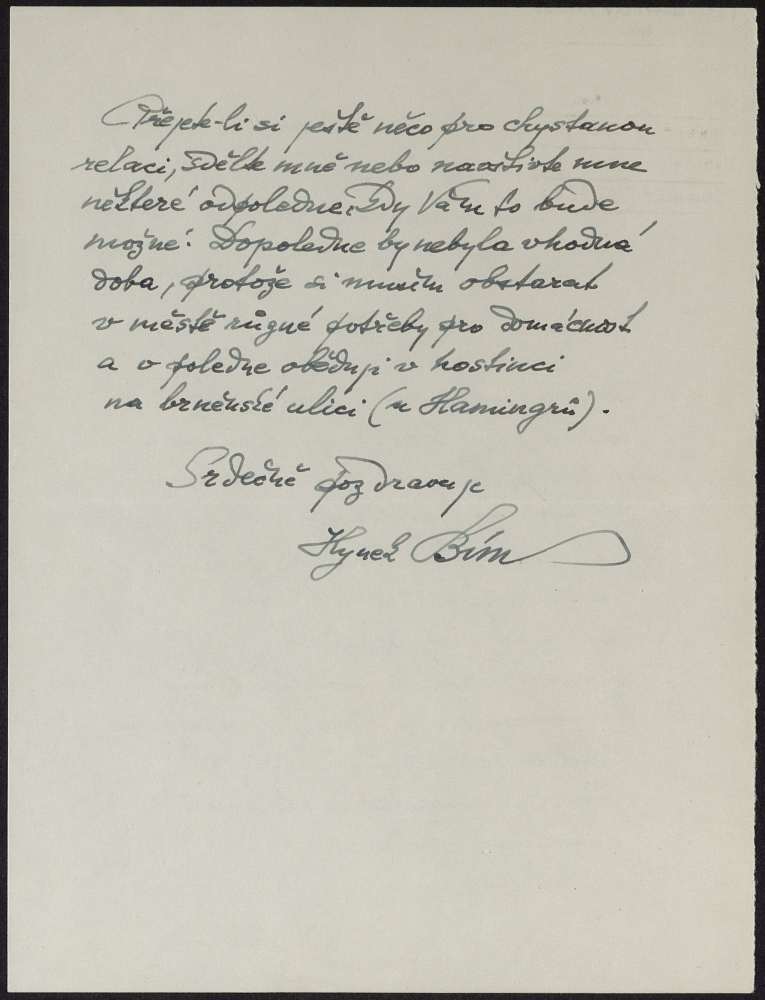 Přejete-li si ještě něco pro chystanou
relaci, sdělte mně nebo navštivte mne
některé odpoledne, kdy Vám to bude
možné. Dopoledne by nebyla vhodná
doba, protože si musím obstarat
v městě různé potřeby pro domácnost
a v poledne oběduji v hostinci
na brněnské ulici (u Flamingrů).
Srdečně pozdravuje
Hynek Bím